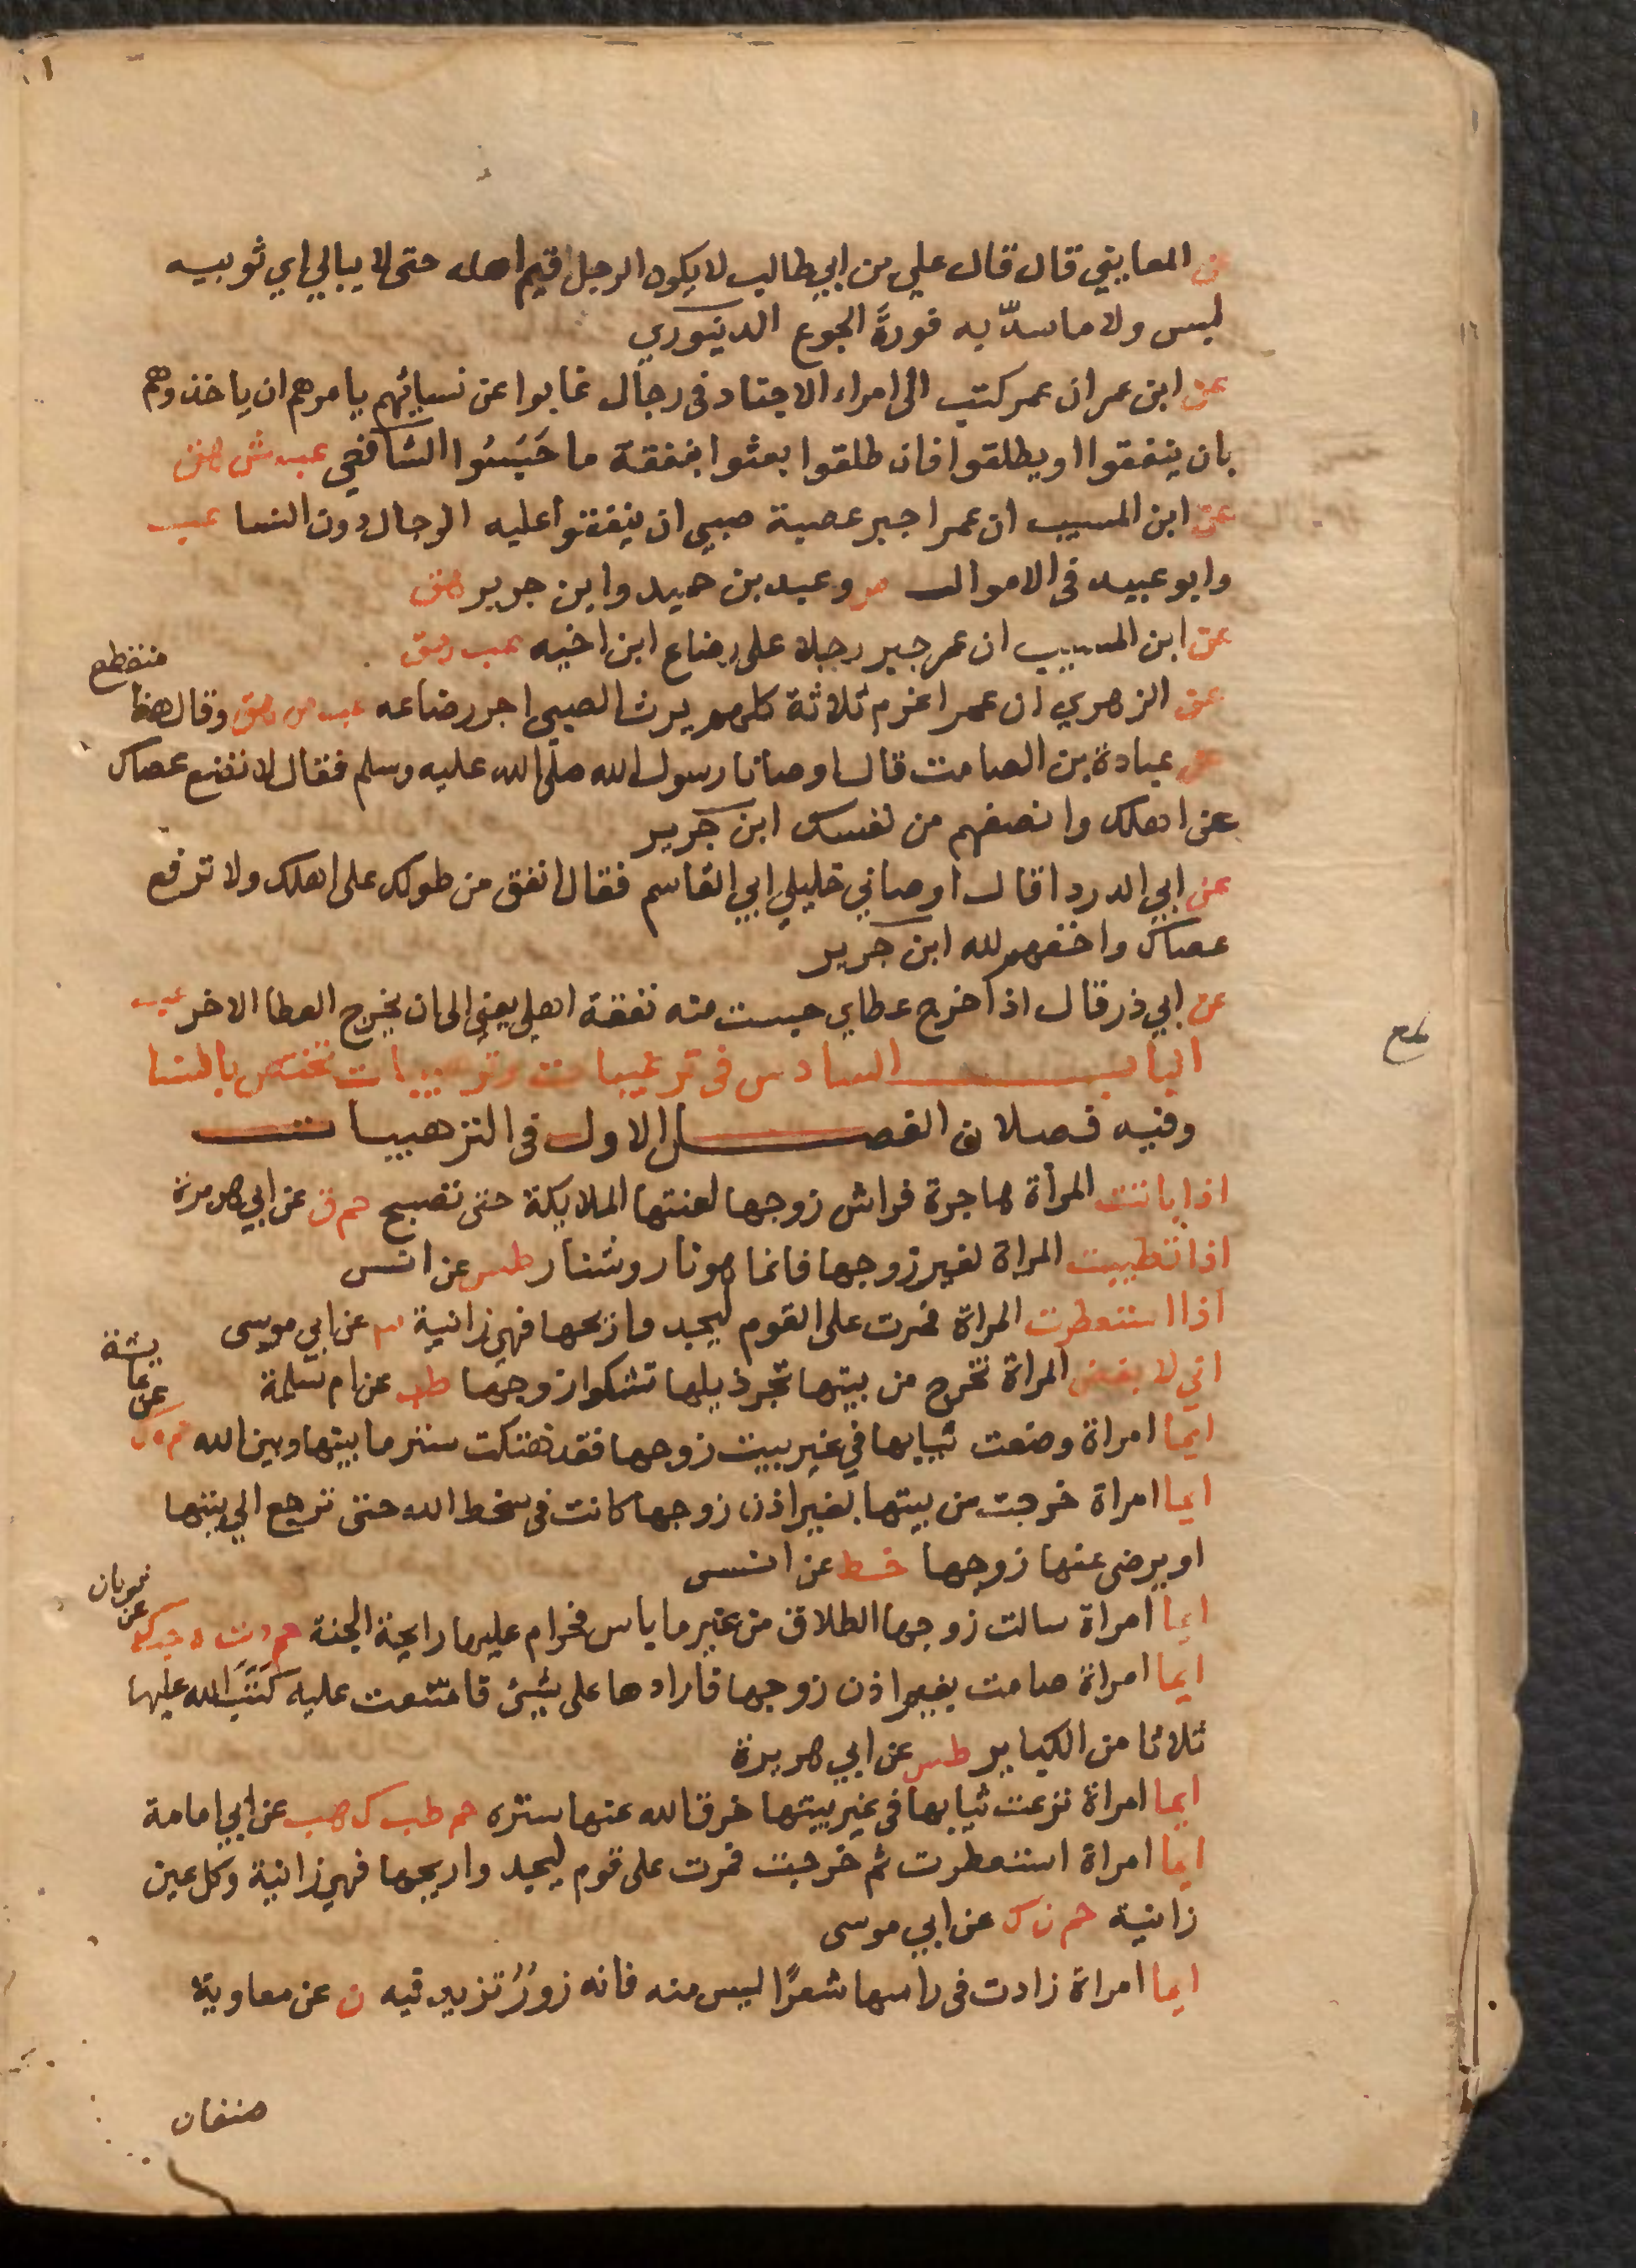 عن المعابني قال قال علي بن ابي طالب لا يكون الرجل قيم اهله حتى لا يبالي اي ثوبيه
لبس ولا ما سدّ به فورةَ الجوع الدينوري
عن ابن عمر ان عمر كتب الى امراء الاجناد في رجال غابوا عن نسائهم يامرهم ان ياخذوهم
بان ينفقوا او يطلقوا فان طلقوا بعثوا بنفقة ما حَبَسُوا الشافعي عب ش هق
عن ابن المسيب ان عمر اجبر عصبة صبي ان ينفقوا عليه الرجال دون النسا عب
وابو عبيد في الاموال ص وعبد بن حميد وابن جرير هق
عن ابن المسيب ان عمر جبر رجلا على رضاع ابن اخيه عب هق
عن الزهري ان عمر اغرم ثلاثة كلهم يرث الصبي اجر رضاعه عب ص هق وقال هذا
منقطع
عن عبادة بن الصامت قال اوصانا رسول الله صلى الله عليه وسلم فقال لا تضع عصاك
عن اهلك وانصفهم من نفسك ابن جرير
عن ابي الدردا قال اوصاني خليلي ابي القاسم فقال انفق من طولك على اهلك ولا ترفع
عصاك واخفهم لله ابن جرير
عن ابي ذر قال اذا خرج عطاي حبست منه نفقة اهلي يعني الى ان يخرج العطا الاخر عب
الباب السادس في ترغيبات وترهيبات تختص بالنسا
وفيه فصلان الفصل الاول في الترهيبات
اذا باتت المرأة هاجرة فراش زوجها لعنتها الملايكة حتى تصبح حم ق عن ابي هريرة
اذا تطيبت المراة لغير زوجها فانما هو نار وشنار طس عن انس
اذا استعطرت المراة فمرت على القوم ليجدوا ريحها فهي زانية عن ابي موسى
اني لابغض المراة تخرج من بيتها تجر ذيلها تشكوا زوجها طب عن ام سلمة
ايما امراة وضعت ثيابها في غير بيت زوجها فقد هتكت ستر ما بينها وبين الله حم ه ك
عن عايشة
ايما امراة خرجت من بيتها بغير اذن زوجها كانت في سخط الله حتى ترجع الي بيتها
او يرضى عنها زوجها خط عن انس
ايما امراة سالت زوجها الطلاق من غير ما باس فحرام عليها رايحة الجنة حم د ت ه حب ك
عن ثوبان
ايما امراة صامت بغير اذن زوجها فارادها على شيئ فامتنعت عليه كَتَبَ الله عليها
ثلاثا من الكباير طس عن ابي هريرة
ايما امراة نزعت ثيابها في غير بيتها خرق الله عنها ستره حم طب ك هب عن ابي امامة
ايما امراة استعطرت ثم خرجت فمرت على قوم ليجدوا ريحها فهي زانية وكل عين
زانية حم ن ك عن ابي موسى
ايما امراة زادت في راسها شعرًا ليس منه فانه زورٌ تزيد فيه ن عن معاوية
صنفان